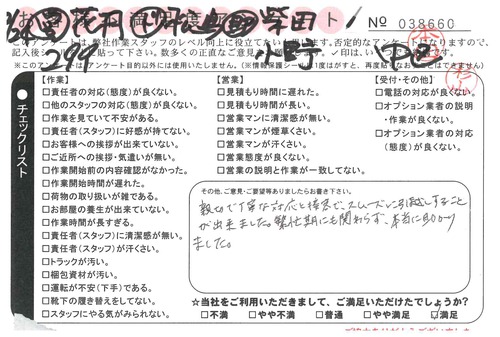 № 038660
このアンケートは、弊社作業スタッフのレベル向上に役立てたい
※このアンケートは、アンケート目的以外には使用いたしません。
チェックリスト
【作業】
□責任者の対応(態度)が良くない。
□他のスタッフの対応(態度)が良くない。
□作業を見ていて不安がある。
□責任者(スタッフ)に好感が持てない。
□お客様への挨拶が出来ていない。
□ご近所への挨拶・気遣いが無い。
□作業開始前の内容確認がなかった。
□作業開始時間が遅れた。
□荷物の取り扱いが雑である。
□お部屋の養生が出来ていない。
□作業時間が長すぎる。
□責任者(スタッフ)に清潔感が無い。
□責任者(スタッフ)が汗くさい。
□トラックが汚い。
□梱包資材が汚い。
□運転が不安(下手)である。
□靴下の履き替えをしてない。
□スタッフにやる気がみられない。
【営業】
□見積もり時間に遅れた。
□見積もり時間が長い。
□営業マンに清潔感が無い。
□営業マンが煙草くさい。
□営業マンが汗くさい。
□営業態度が良くない。
□営業の説明と作業が一致してない。
【受付・その他】
□電話の対応が良くない。
□オプション業者の説明
・作業が良くない。
□オプション業者の対応
(態度)が良くない。
その他、ご意見・ご要望等ありましたらお書き下さい。
親切で丁寧な対応と接客で、スムーズに引越しすること
が出来ました。繁忙期にも関わらず、本当に助かり
ました。
☆当社をご利用いただきまして、ご満足いただけたでしょうか?
□不満 □やや不満 □普通 □やや満足 ☑満足